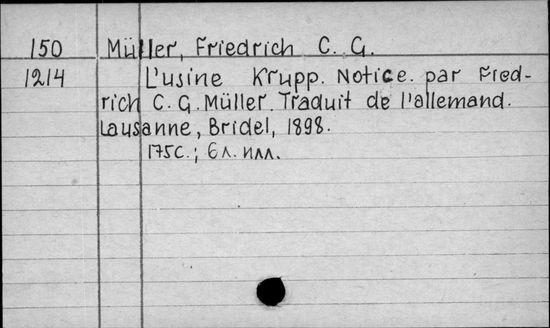 150 Müller, Friedrich C. G.
1214 L'usine Krupp. Notice. par Fried-
rich C. G. Müller. Traduit de l'allemand.
Lausanne, Bridel, 1898.
175с.; 6 л. илл.